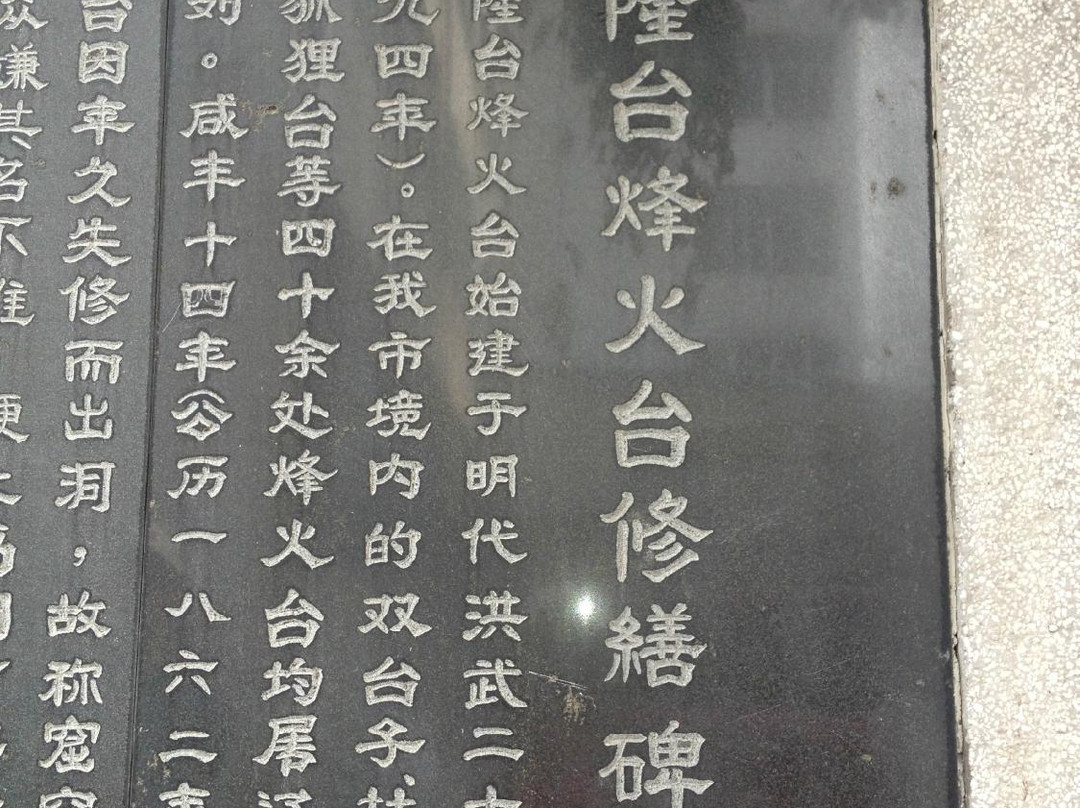 隆台烽火台修缮碑
隆台烽火台始建于明代洪武二十
四年）。在我市境内的双台子、
狐狸台等四十余处烽火台均居
列。咸丰十四年（公历一八六二年
台因年久失修而出洞，故称窟窿
谦其名不雅